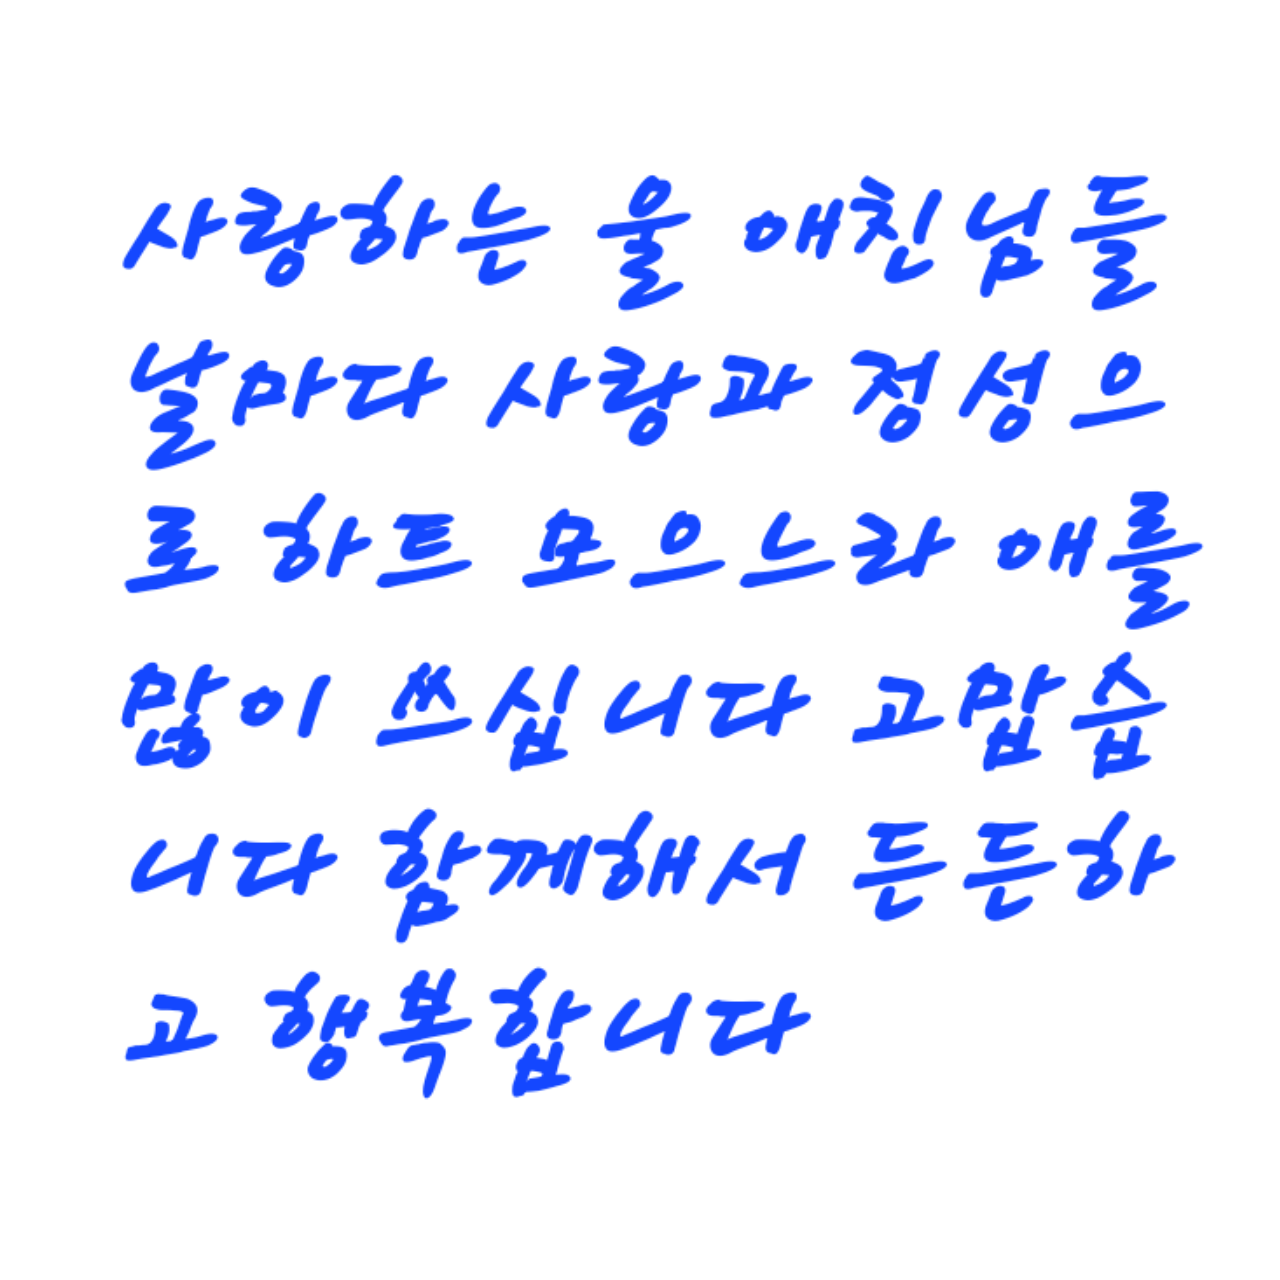 사랑하는 울 애친님들
날마다 사랑과 정성으
로 하트 모으느라 애를
많이 쓰십니다 고맙습
니다 함께해서 든든하
고 행복합니다